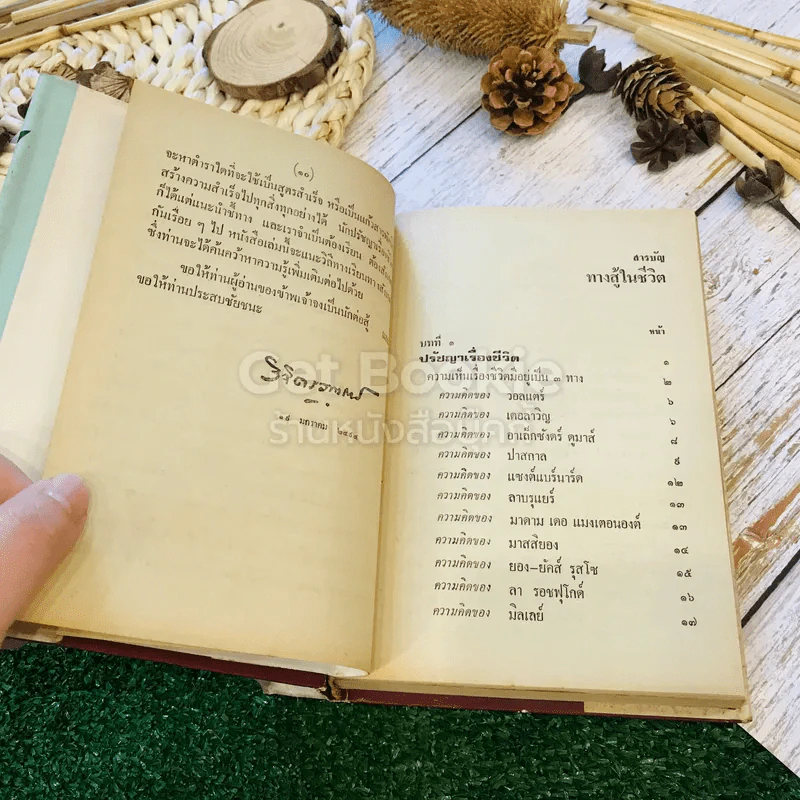 (๑๐)
จะหาตำราใดที่จะใช้เป็นสูตรสำเร็จ หรือเป็นแก้วสารพัด
สร้างความสำเร็จไปทุกสิ่งทุกอย่างได้ นักปรัชญาเรื่อง
ก็ได้แต่แนะนำชี้ทาง และเราจำเป็นต้องเรียน ต้อง
กันเรื่อย ๆ ไป หนังสือเล่มนี้จะแนะวิถีทางเรียนทาง
ซึ่งท่านจะได้ค้นคว้าหาความรู้เพิ่มเติมต่อไปด้วย
ขอให้ท่านผู้อ่านของข้าพเจ้าจงเป็นนักต่อสู้
ขอให้ท่านประสบชัยชนะ
มกราคม
สารบัญ
ทางสู้ในชีวิต
หน้า
บทที่ ๑
ปรัชญาเรื่องชีวิต ๑
ความเห็นเรื่องชีวิตมีอยู่เป็น ๓ ทาง ๒
ความคิดของ วอลแตร์ ๖
ความคิดของ เดอลาวิญ ๖
ความคิดของ อาเล็กซังดร์ ดูมาส์ ๘
ความคิดของ ปาสกาล ๙
ความคิดของ แซงต์แบร์นาร์ด ๑๒
ความคิดของ ลาบรุแยร์ ๑๓
ความคิดของ มาดาม เดอ แมงเตอนองต์ ๑๓
ความคิดของ มาสสิยอง ๑๔
ความคิดของ ยอง-ยัคส์ รุสโซ ๑๕
ความคิดของ ลา รอชฟุโกด์ ๑๖
ความคิดของ มิลเลย์ ๑๗
Get Bookie
ร้านหนังสือมุกกี้